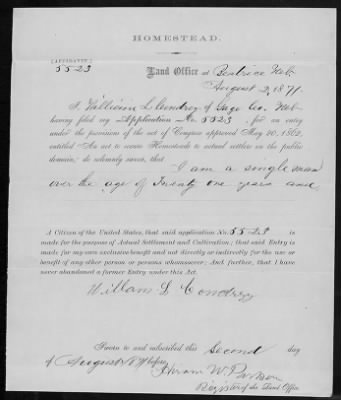 HOMESTEAD.
[AFFIDAVIT.]
5523
Land Office at Beatrice Neb.
August 2, 1871.
I, William L. Condrey of Gage Co. Neb
having filed my Application No. 5523, for an entry
under the provisions of the act of Congress approved May 20, 1862,
entitled An act to secure Homesteads to actual settlers on the public
domain; do solemnly swear, that I am a single man
over the age of Twenty one years and
A Citizen of the United States, that said application No. 5523 is
made for the purpose of Actual Settlement and Cultivation; that said Entry is
made for my own exclusive benefit and not directly or indirectly for the use or
benefit of any other person or persons whomsoever; And further, that I have
never abandoned a former Entry under this Act.
William L Condrey
Sworn to and subscribed this Second day
of August before
Hiram W. Parker
Register of the Land Office